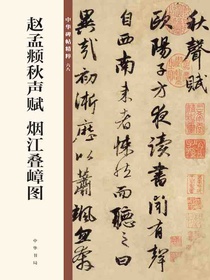 中华碑帖精粹
赵孟頫秋声赋 烟江叠嶂图
中华书局
秋聲賦
歐陽子方夜讀書聞有聲
自西南来者悚然而聽之曰
異哉初淅瀝以蕭颯忽奔